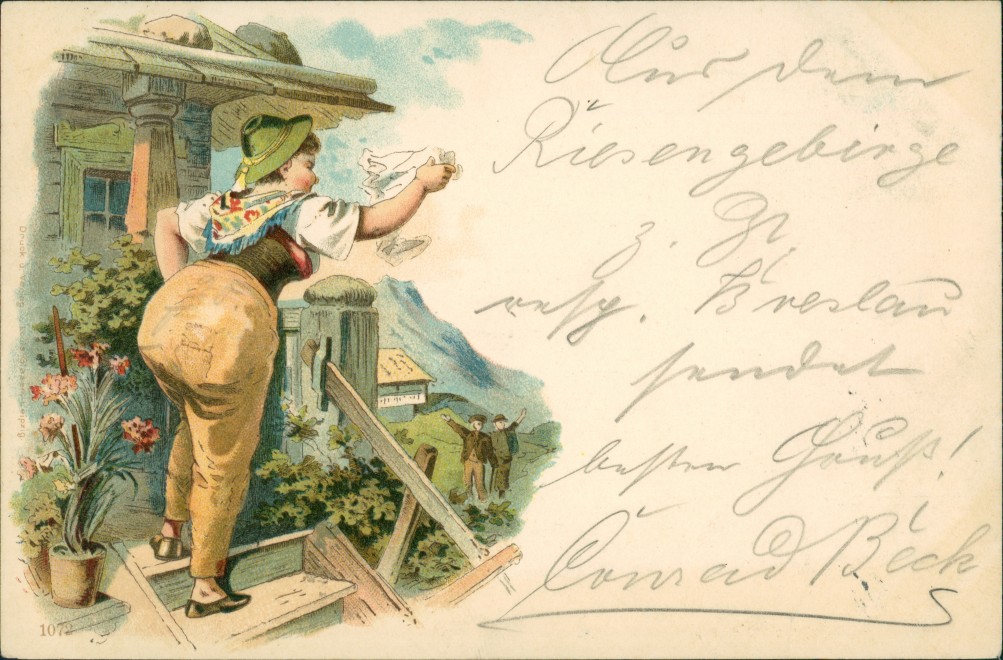 Aus dem
Riesengebirge
z. Zt.
resp. Breslau
sendet
besten Gruß!
Conrad Beck
1072
Druck